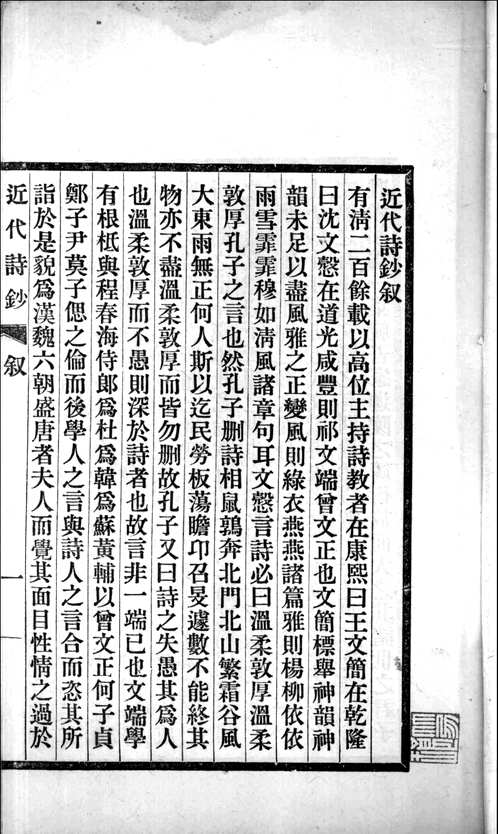 近代詩鈔叙
有清二百餘載以高位主持詩教者在康熙曰王文簡在乾隆
曰沈文慤在道光咸豐則祁文端曾文正也文簡標舉神韻神
韻未足以盡風雅之正變風則綠衣燕燕諸篇雅則楊柳依依
雨雪霏霏穆如清風諸章句耳文慤言詩必曰溫柔敦厚溫柔
敦厚孔子之言也然孔子删詩相鼠鶉奔北門北山繁霜谷風
大東雨無正何人斯以迄民勞板蕩瞻卬召旻遽數不能終其
物亦不盡溫柔敦厚而皆勿删故孔子又曰詩之失愚其爲人
也溫柔敦厚而不愚則深於詩者也故言非一端已也文端學
有根柢與程春海侍郎爲杜爲韓爲蘇黃輔以曾文正何子貞
鄭子尹莫子偲之倫而後學人之言與詩人之言合而恣其所
詣於是貌爲漢魏六朝盛唐者夫人而覺其面目性情之過於
近代詩鈔 叙 一